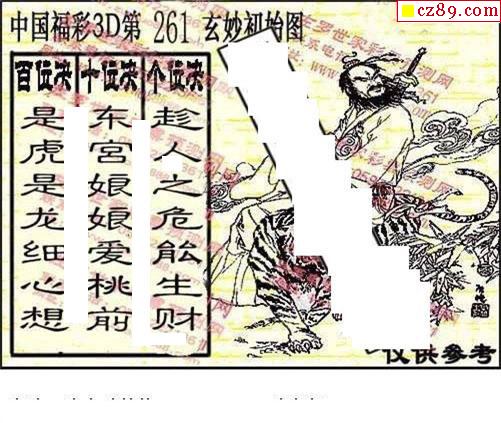 cz89.com
中国福彩3D第 261 玄妙初始图
百位诀 十位诀 个位诀
是虎是龙细心想
东宫娘娘爱桃前
趁人之危能生财
仅供参考